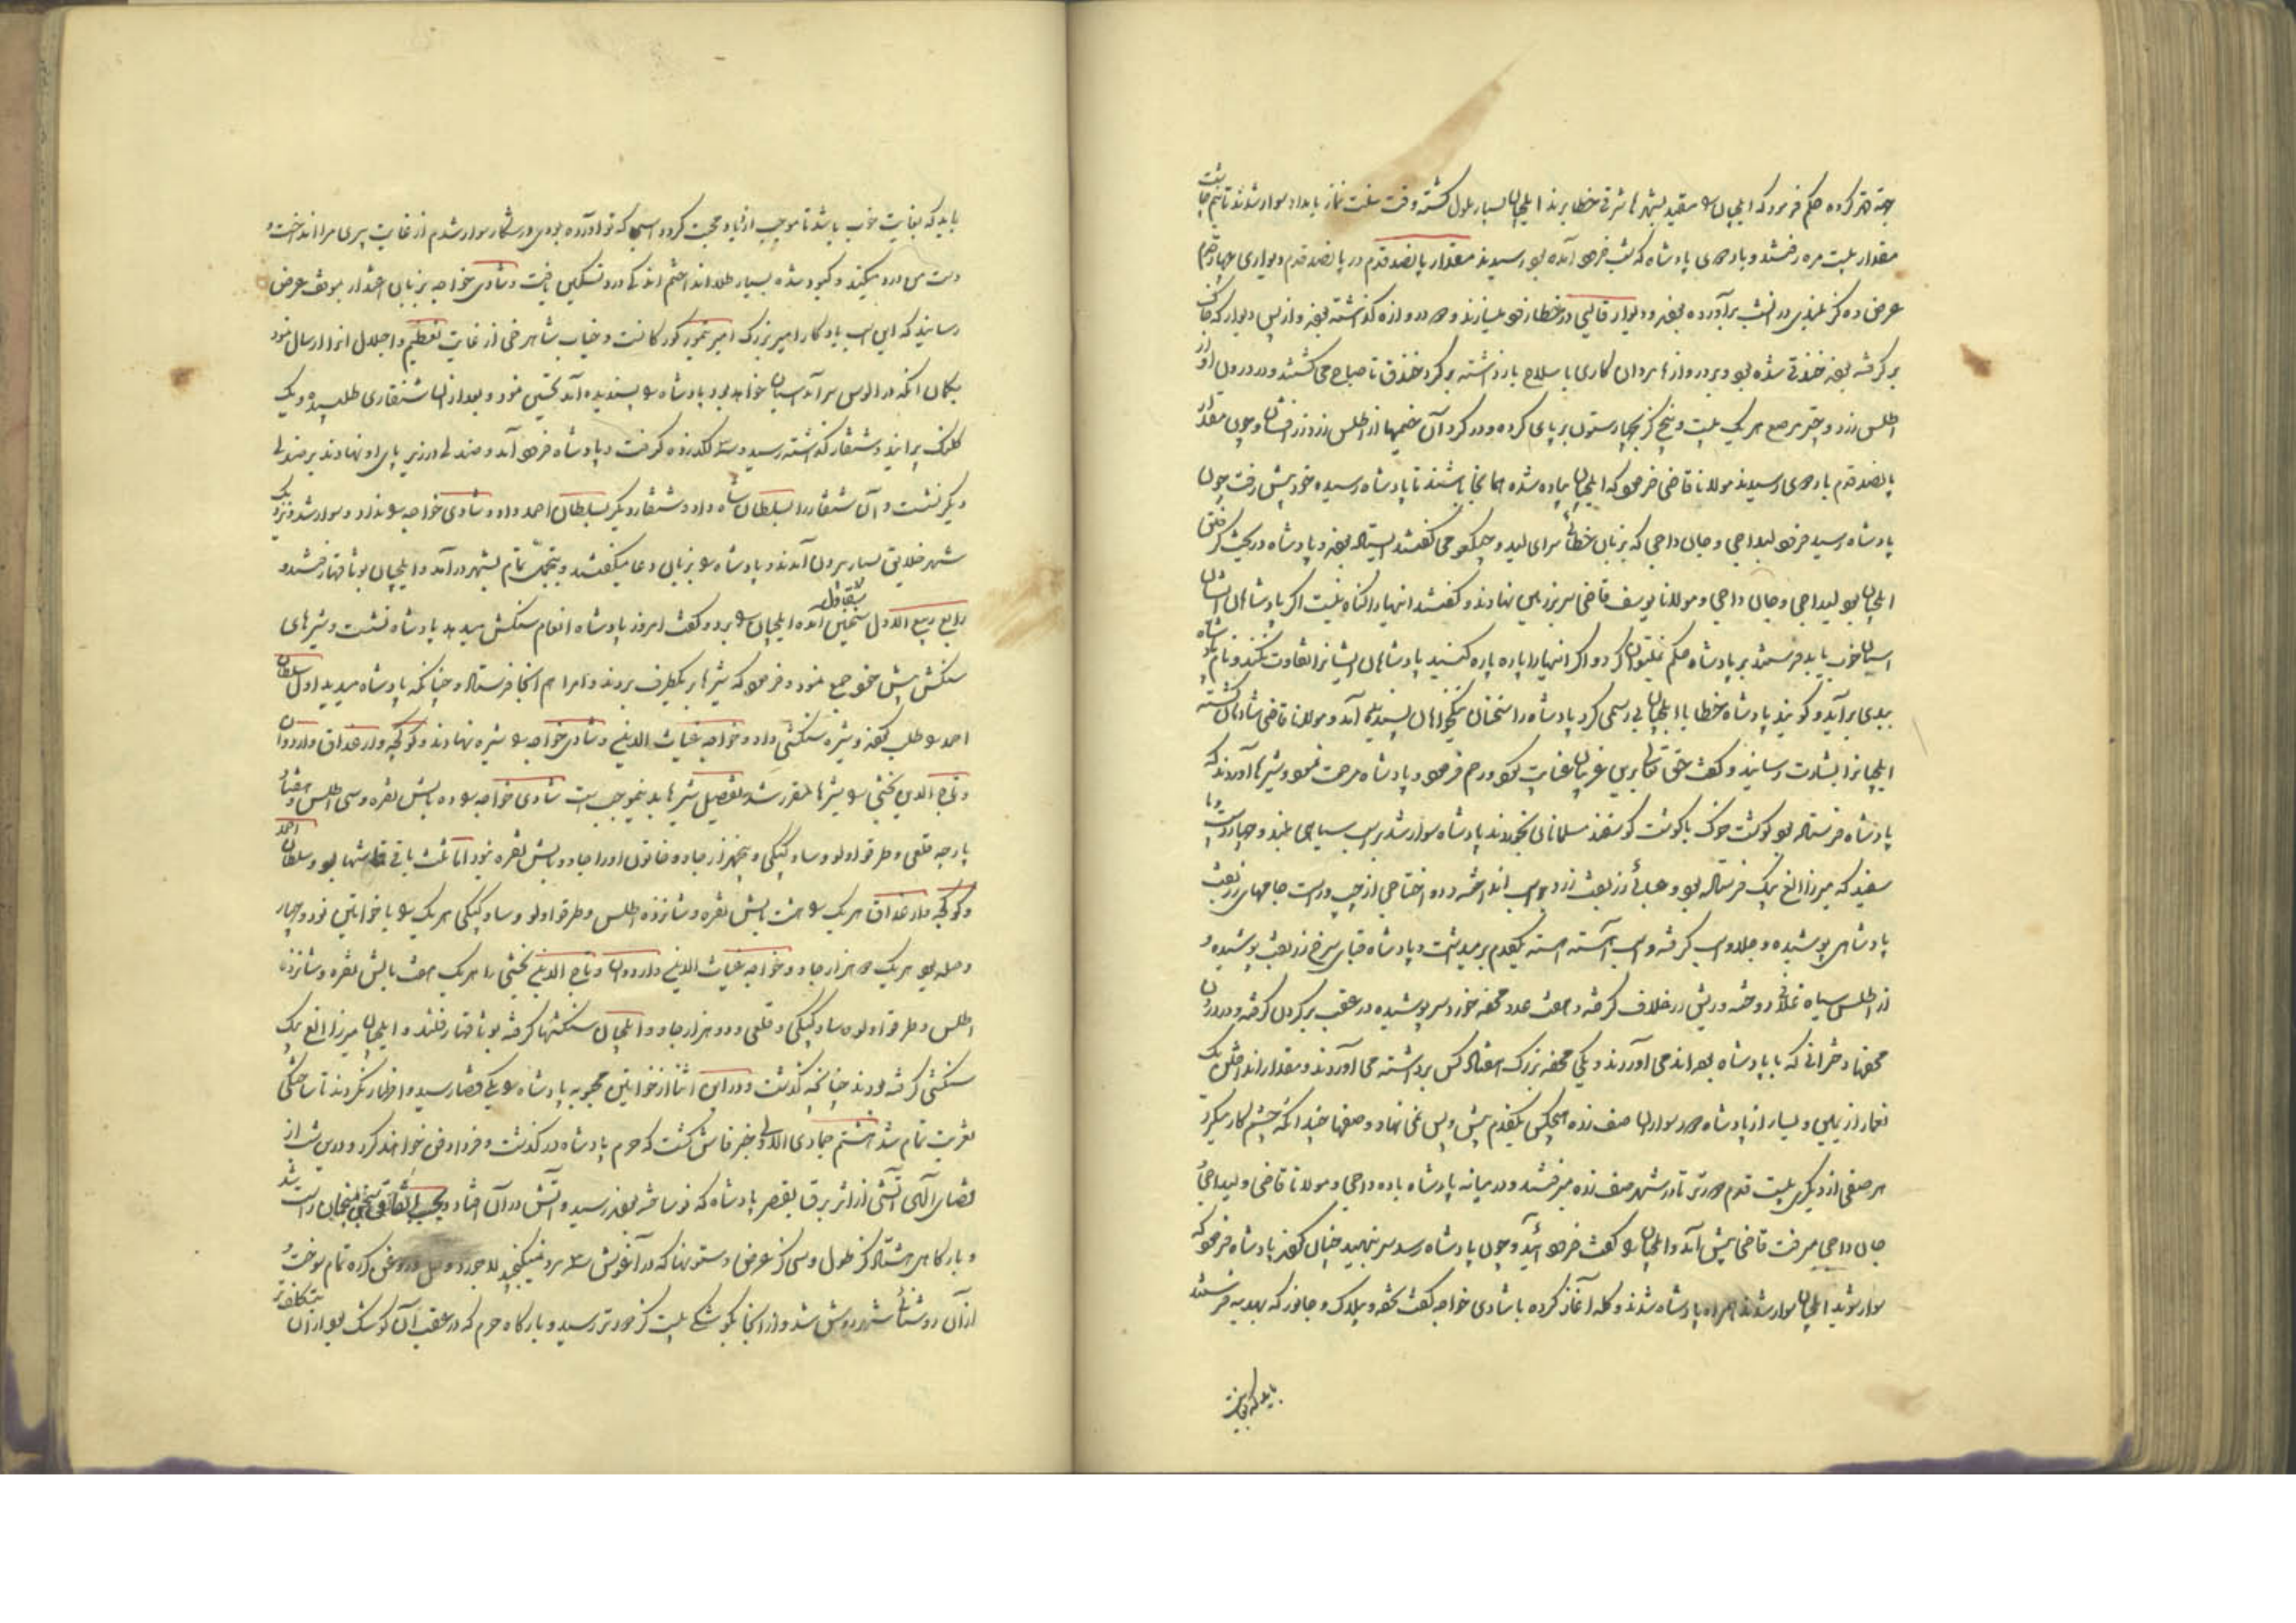 جهة قهر کرده حکم فرمود که ایلچیان را مقید بشهرهاء شرقی خطا برند ایلچیان بسیار ملول گشته وقت سنت نماز بامداد سوار شدند تا نیم چاشت
مقدار بیست مره رفتند و باردوی پادشاه که شب فرود آمده بود رسیدند مقدار پانصد قدم در پانصد قدم دیواری چهار قدم
عرض ده گز بلندی در شب برآورده بودند و دیوار قالبی در خطا زود میسازند و دو دروازه گذاشته بودند و از پس دیوار که خاک
بر گرفته بودند خندقی شده بود و بر دروازها مردان کاری با سلاح بازداشته بر گرد خندق تا صباح می گشتند و در درون او از
اطلس زرد و چتر مرصع هر یک بیست و پنج گز بچهار ستون بر پای کرده و در گرد آن خیمها از اطلس زرد زرفشان و چون مقدار
پانصد قدم باردوی رسیدند مولانا قاضی فرمود که ایلچیان پیاده شده همانجا باشند تا پادشاه رسیده خود پیش رفت چون
پادشاه رسید فرود لیداجی و جان داجی که بزبان خطائی سرای لید و جیکفو می گفتند ایستاده بودند و پادشاه در بحث گرفتن
ایلچیان بود لیداجی و جان داجی و مولانا یوسف قاضی سر بزمین نهادند و گفتند اینها را گناه نیست اگر پادشاهان ایشان
اسبان خوب باید فرستند بر پادشاه حکم نمیتوان کرد و اگر اینها را پاره پاره کنند پادشاهان ایشانرا تفاوت نکند و نام پادشاه
ببدی برآید و گویند پادشاه خطا با ایلچیان بی رسمی کرد پادشاه را سخنان نیکخواهان پسندیده آمد و مولانا قاضی شادمان گشته
ایلچیانرا بشارت رسانید و گفت حق تعالی برین غریبان عنایت نمود و رحم فرمود و پادشاه مرحمت نمود و شیرها آوردند که
پادشاه فرستاده بود گوشت خوک با گوشت گوسفند مسلمانان نخوردند پادشاه سوار شد بر اسب سیاهی بلند و چهار دست و پا
سفید که میرزا الغ بیک فرستاده بود و عبائی زربفت زرد بر اسب انداخته و دو اختاجی از چپ و راست جامهای زربفت
پادشاهی پوشیده و جلو اسب گرفته و اسب آهسته آهسته یکقدم بر میداشت و پادشاه قبای سرخ زربفت پوشیده و
از اطلس سیاه غلافی دوخته و ریش در غلاف گرفته و هفت عدد محفه خورد سر پوشیده در عقب بر گردن گرفته و در درون
محفها دخترانی که با پادشاه بوده اند می آوردند و یکی محفه بزرگ هفتاد کس برداشته می آوردند و مقدار انداختن یک
از یمین و یسار از پادشاه دور سواران صف زده هیچکس یکقدم پیش و پس نمی نهاد و صفها چندانکه چشم کار میکرد
هر صفی از دیگری بیست قدم دورتر تا در شهر صف زده میرفتند و در میانه پادشاه با ده داجی و مولانا قاضی و لیداجی
جان داجی میرفت قاضی پیش آمد و ایلچیان را گفت فرود آئید و چون پادشاه رسد سر بنهید چنان کردند پادشاه فرمود که
سوار شوید ایلچیان سوار شدند همراه پادشاه شدند و گله آغاز کرده با شادی خواجه گفت تحفه و بیلاک و جانور که بهدیه فرستند
باید که بغایت
باید که بغایت خوب باشد تا موجب ازدیاد محبت گردد اسبی که تو آورده بودی در شکار سوار شدم از غایت پیری مرا انداخت و
دست من درد میکند و کبود شده بسیار طلا انداختم اندکی درد تسکین یافت و شادی خواجه بزبان اعتذار بموقف عرض
رسانید که این اسب یادگار امیر بزرگ امیر تیمور کورکانست و جناب شاهرخی از غایت تعظیم و اجلال آنرا ارسال نمود
بگمان آنکه در الوس سرآمد اسبان خواهد بود پادشاه را پسندیده آمد تحسین نمود و بعد از آن شنقاری طلبیده و یک
کلنگ پرانید و شنقار گذاشته رسید و سه لگد زده گرفت و پادشاه فرود آمد و صندلی در زیر پای او نهادند بر صندلی
دیگر نشست و آن شنقار را بسلطان شاه داد و شنقار دیگر بسلطان احمد داد و شادی خواجه را نداد و سوار شد و نزدیک
شهر خلایق بسیار بیرون آمدند و پادشاه را بزبان دعا میگفتند و بتجمل تمام بشهر درآمد و ایلچیان بوثاقها رفتند و
رابع ربیع الاول سقجین آمده ایلچیان را برد و گفت امروز پادشاه انعام سنکش میدهد پادشاه نشست و شیرهای
سنکش پیش خود جمع نمود و فرمود که شیرها بر یکطرف بردند و امرا هم آنجا فرستاده و چنانکه پادشاه میدید اول سلطان
احمد را طلب کردند و شیره سنکشی داد و خواجه غیاث الدین و شادی خواجه را شیره نهادند و کوکجه و ارغداق و اردوان
و تاج الدین بخشی را شیرها مقرر شد تفصیل شیرها بدینموجب است شادی خواجه را ده بالش نقره و سی اطلس و هفتاد
پارچه قلعی و طرقو و لولو و ساو کپکی و پنجهزار چاو و خاتون او را چاو و بالش نقره نبود اما ثلث باقی قماشها بود و سلطان احمد
و کوکجه و ارغداق هر یک را هشت بالش نقره و شانزده اطلس و طرقو و لولو و ساو کپکی هر یک را با خواتین نود و چهار
وصله بود هر یک دو هزار چاو و خواجه غیاث الدین و اردوان و تاج الدین بخشی را هر یک هفت بالش نقره و شانزده
اطلس و طرقو و لولو و ساو کپکی و قلعی و دو هزار چاو و ایلچیان سنکشها گرفته بوثاقها رفتند و ایلچیان میرزا الغ بیک
سنکشی گرفته بودند چنانچه گذشت و در این اثنا از خواتین محبوبه پادشاه را یکی قضا رسید و اظهار نکردند تا ساختگی
تعزیت تمام شد هشتم جمادی الاولی خبر فاش گشت که حرم پادشاه در گذشت و فردا دفن خواهند کرد و درین شب از
قضای الهی آتشی از اثر برق بقصر پادشاه که نو ساخته بودند رسید و آتش در آن افتاد و بحسب اتفاق سخن منجمان راست شد
و بارگاهی هشتاد گز طول و سی گز عرض و ستونها که در آغوش سه مرد نمیگنجید لاجورد و روغن کرده تمام سوخت و
از آن روشنائی شهر روشن شد و از آنجا بکوشکی بیست گز دورتر رسید و بارگاه حرم که در عقب آن کوشک بود از آن بتکلف تر